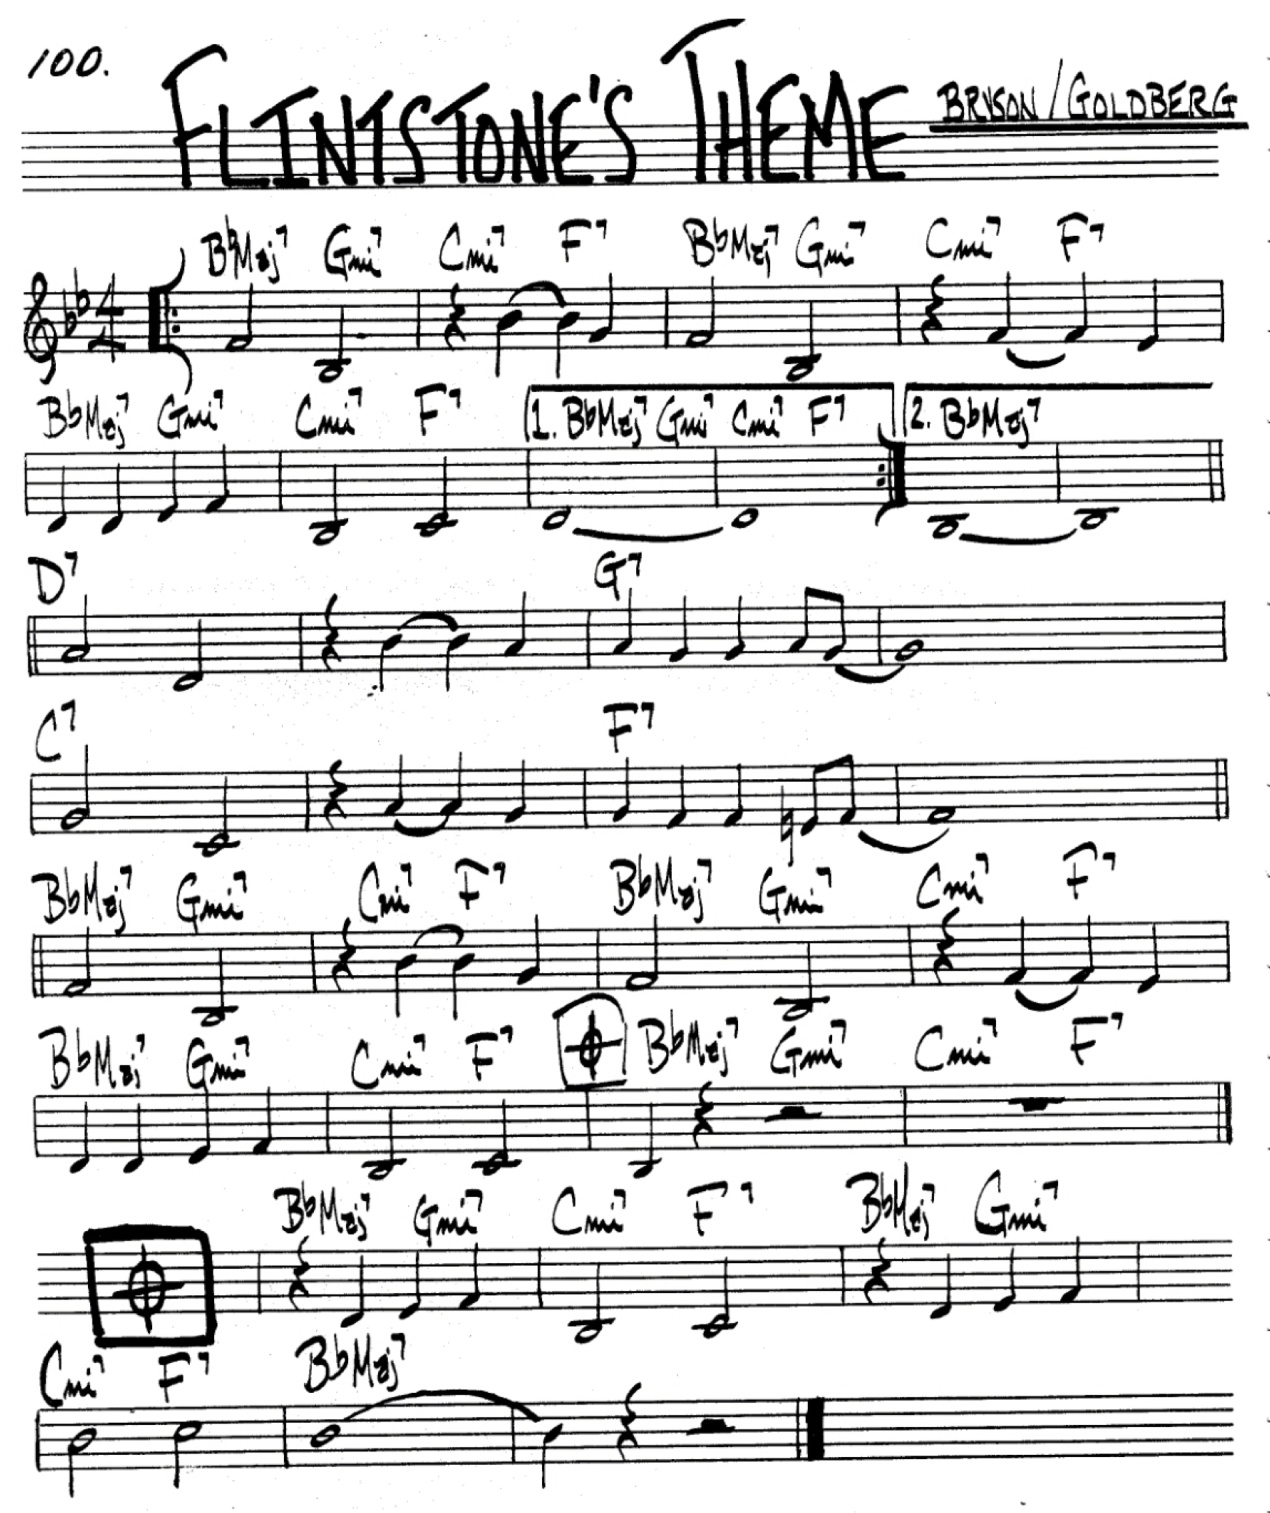 100.
FLINTSTONE'S THEME
BRYSON/GOLDBERG
BbMaj7 Gmi7 Cmi7 F7 BbMaj7 Gmi7 Cmi7 F7
4/4
BbMaj7 Gmi7 Cmi7 F7 1. BbMaj7 Gmi7 Cmi7 F7 2. BbMaj7
D7 G7
C7 F7
BbMaj7 Gmi7 Cmi7 F7 BbMaj7 Gmi7 Cmi7 F7
BbMaj7 Gmi7 Cmi7 F7 BbMaj7 Gmi7 Cmi7 F7
BbMaj7 Gmi7 Cmi7 F7 BbMaj7 Gmi7
Cmi7 F7 BbMaj7